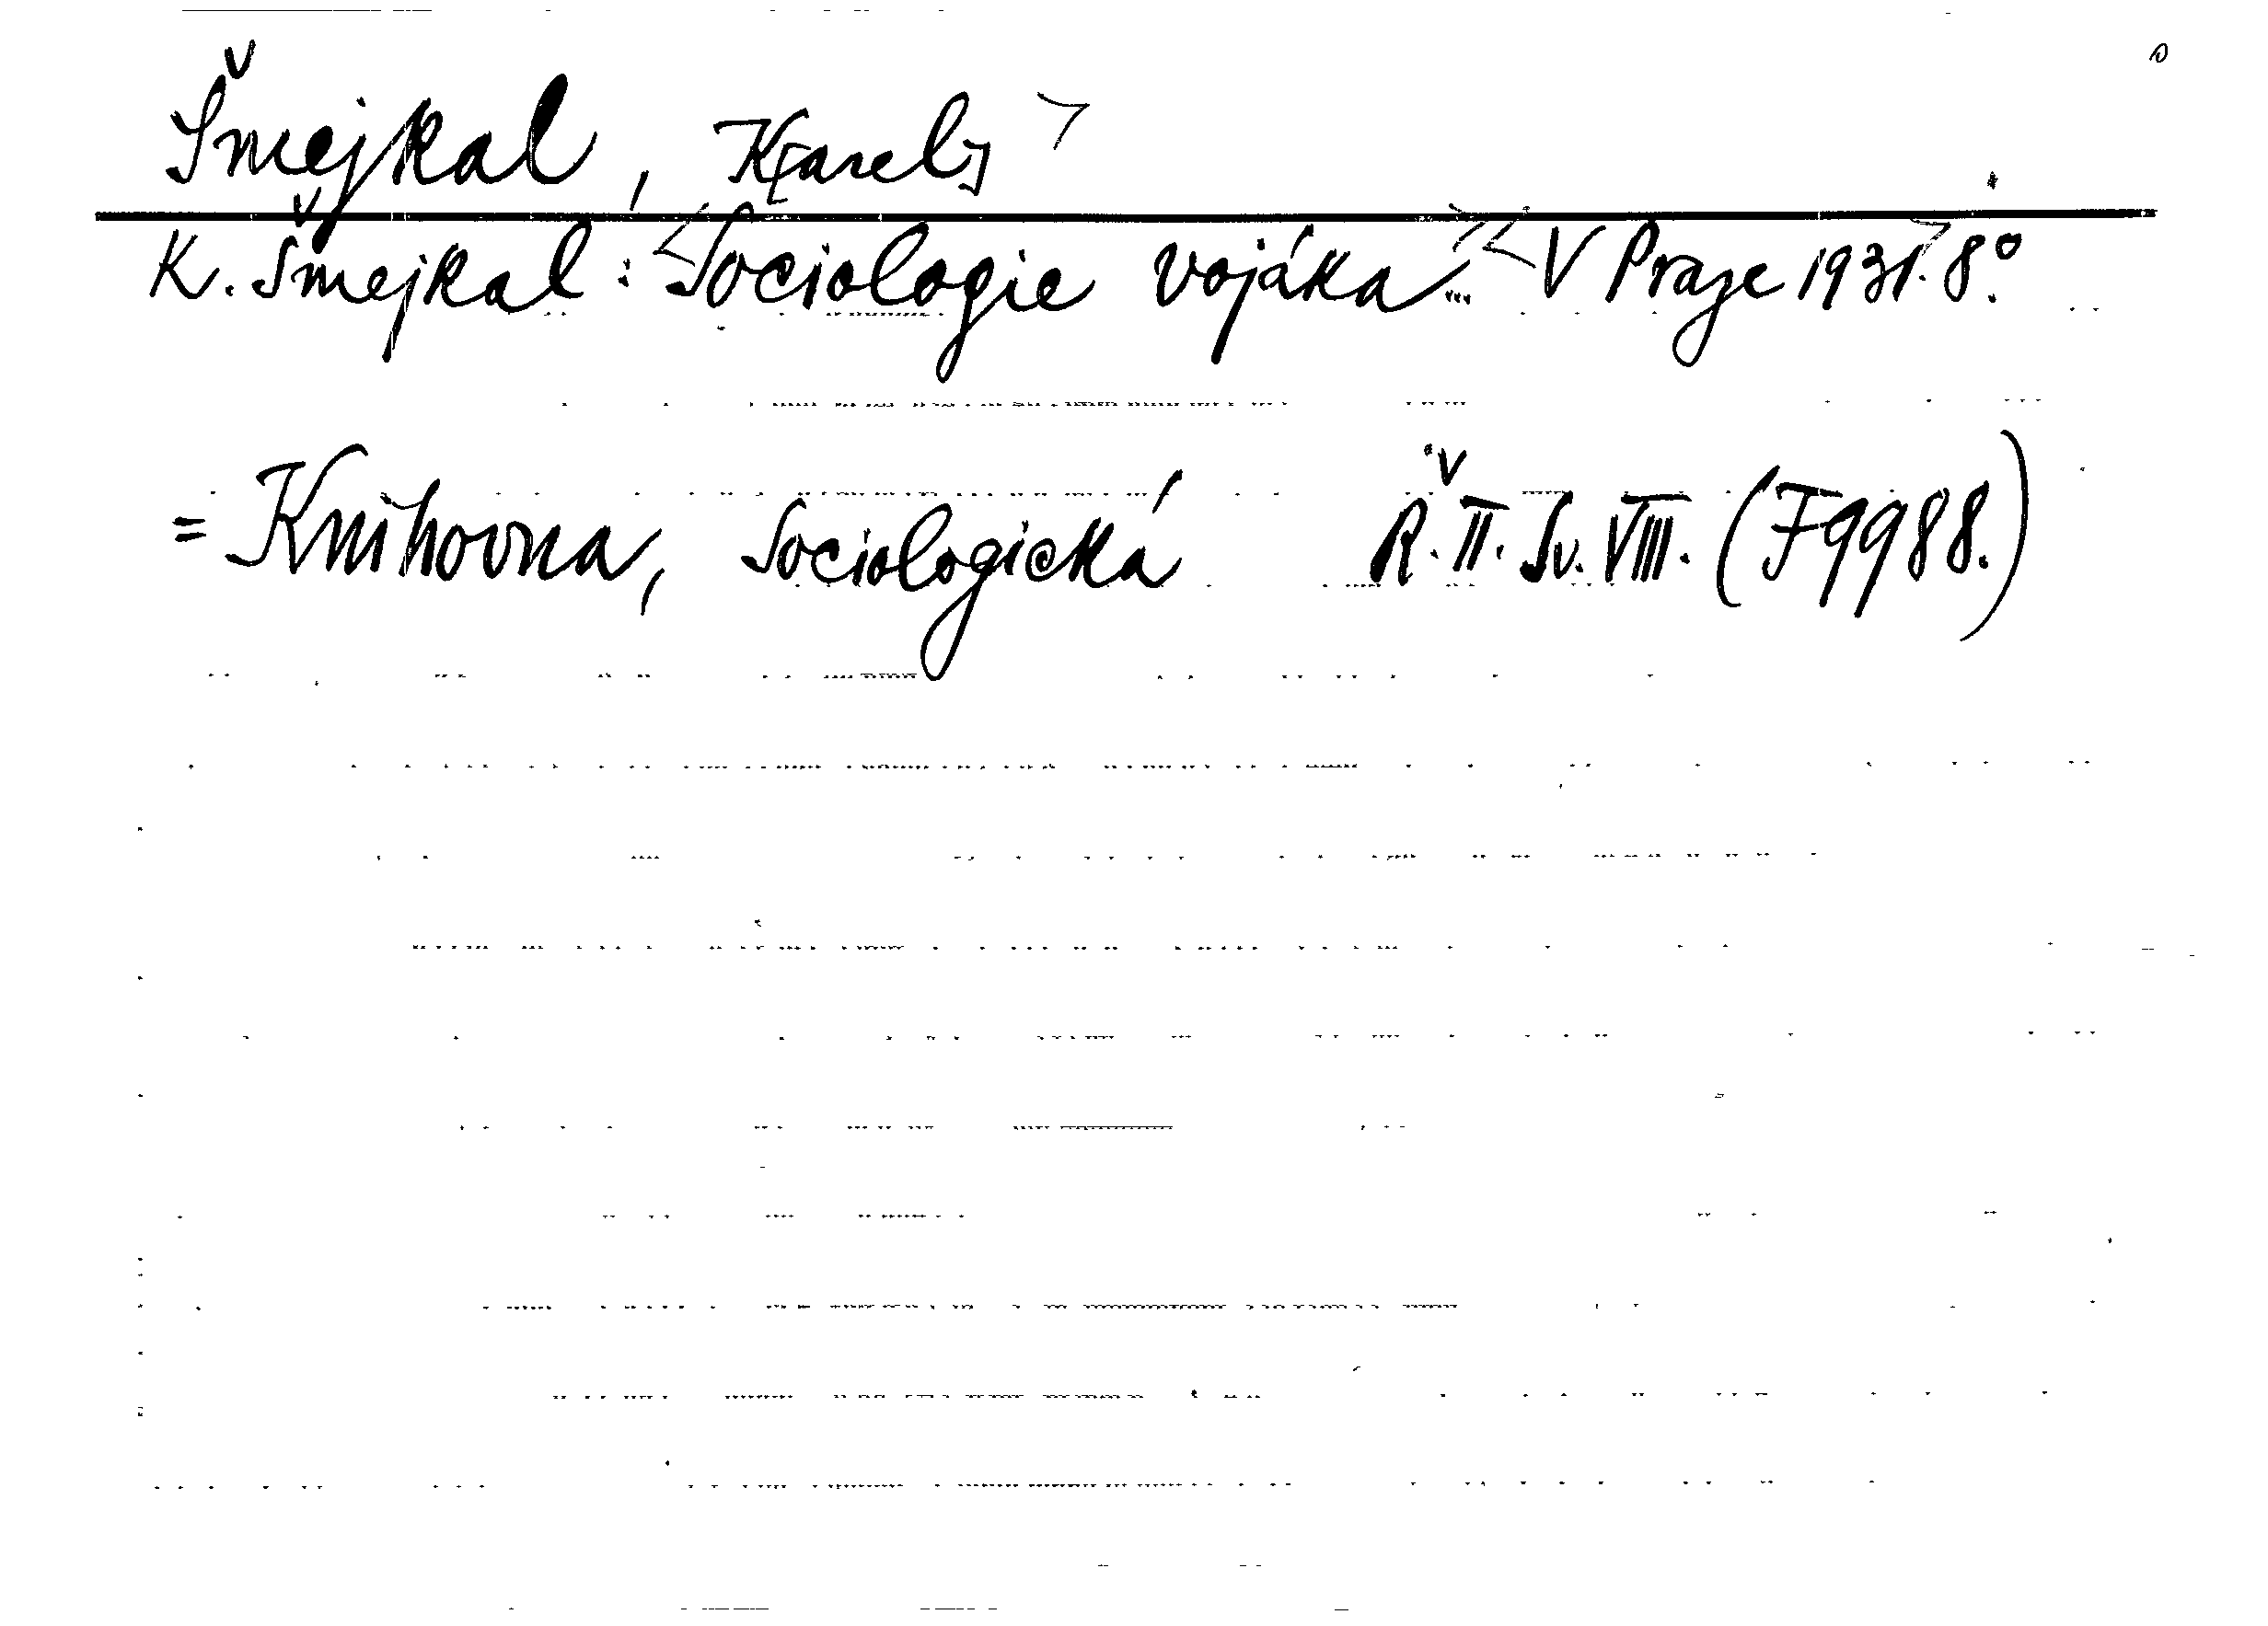 Šmejkal, K[arel]
K. Šmejkal: Sociologie vojáka... V Praze 1931. 8°.
= Knihovna, Sociologická Ř. II. Sv. VIII. (F 9988.)